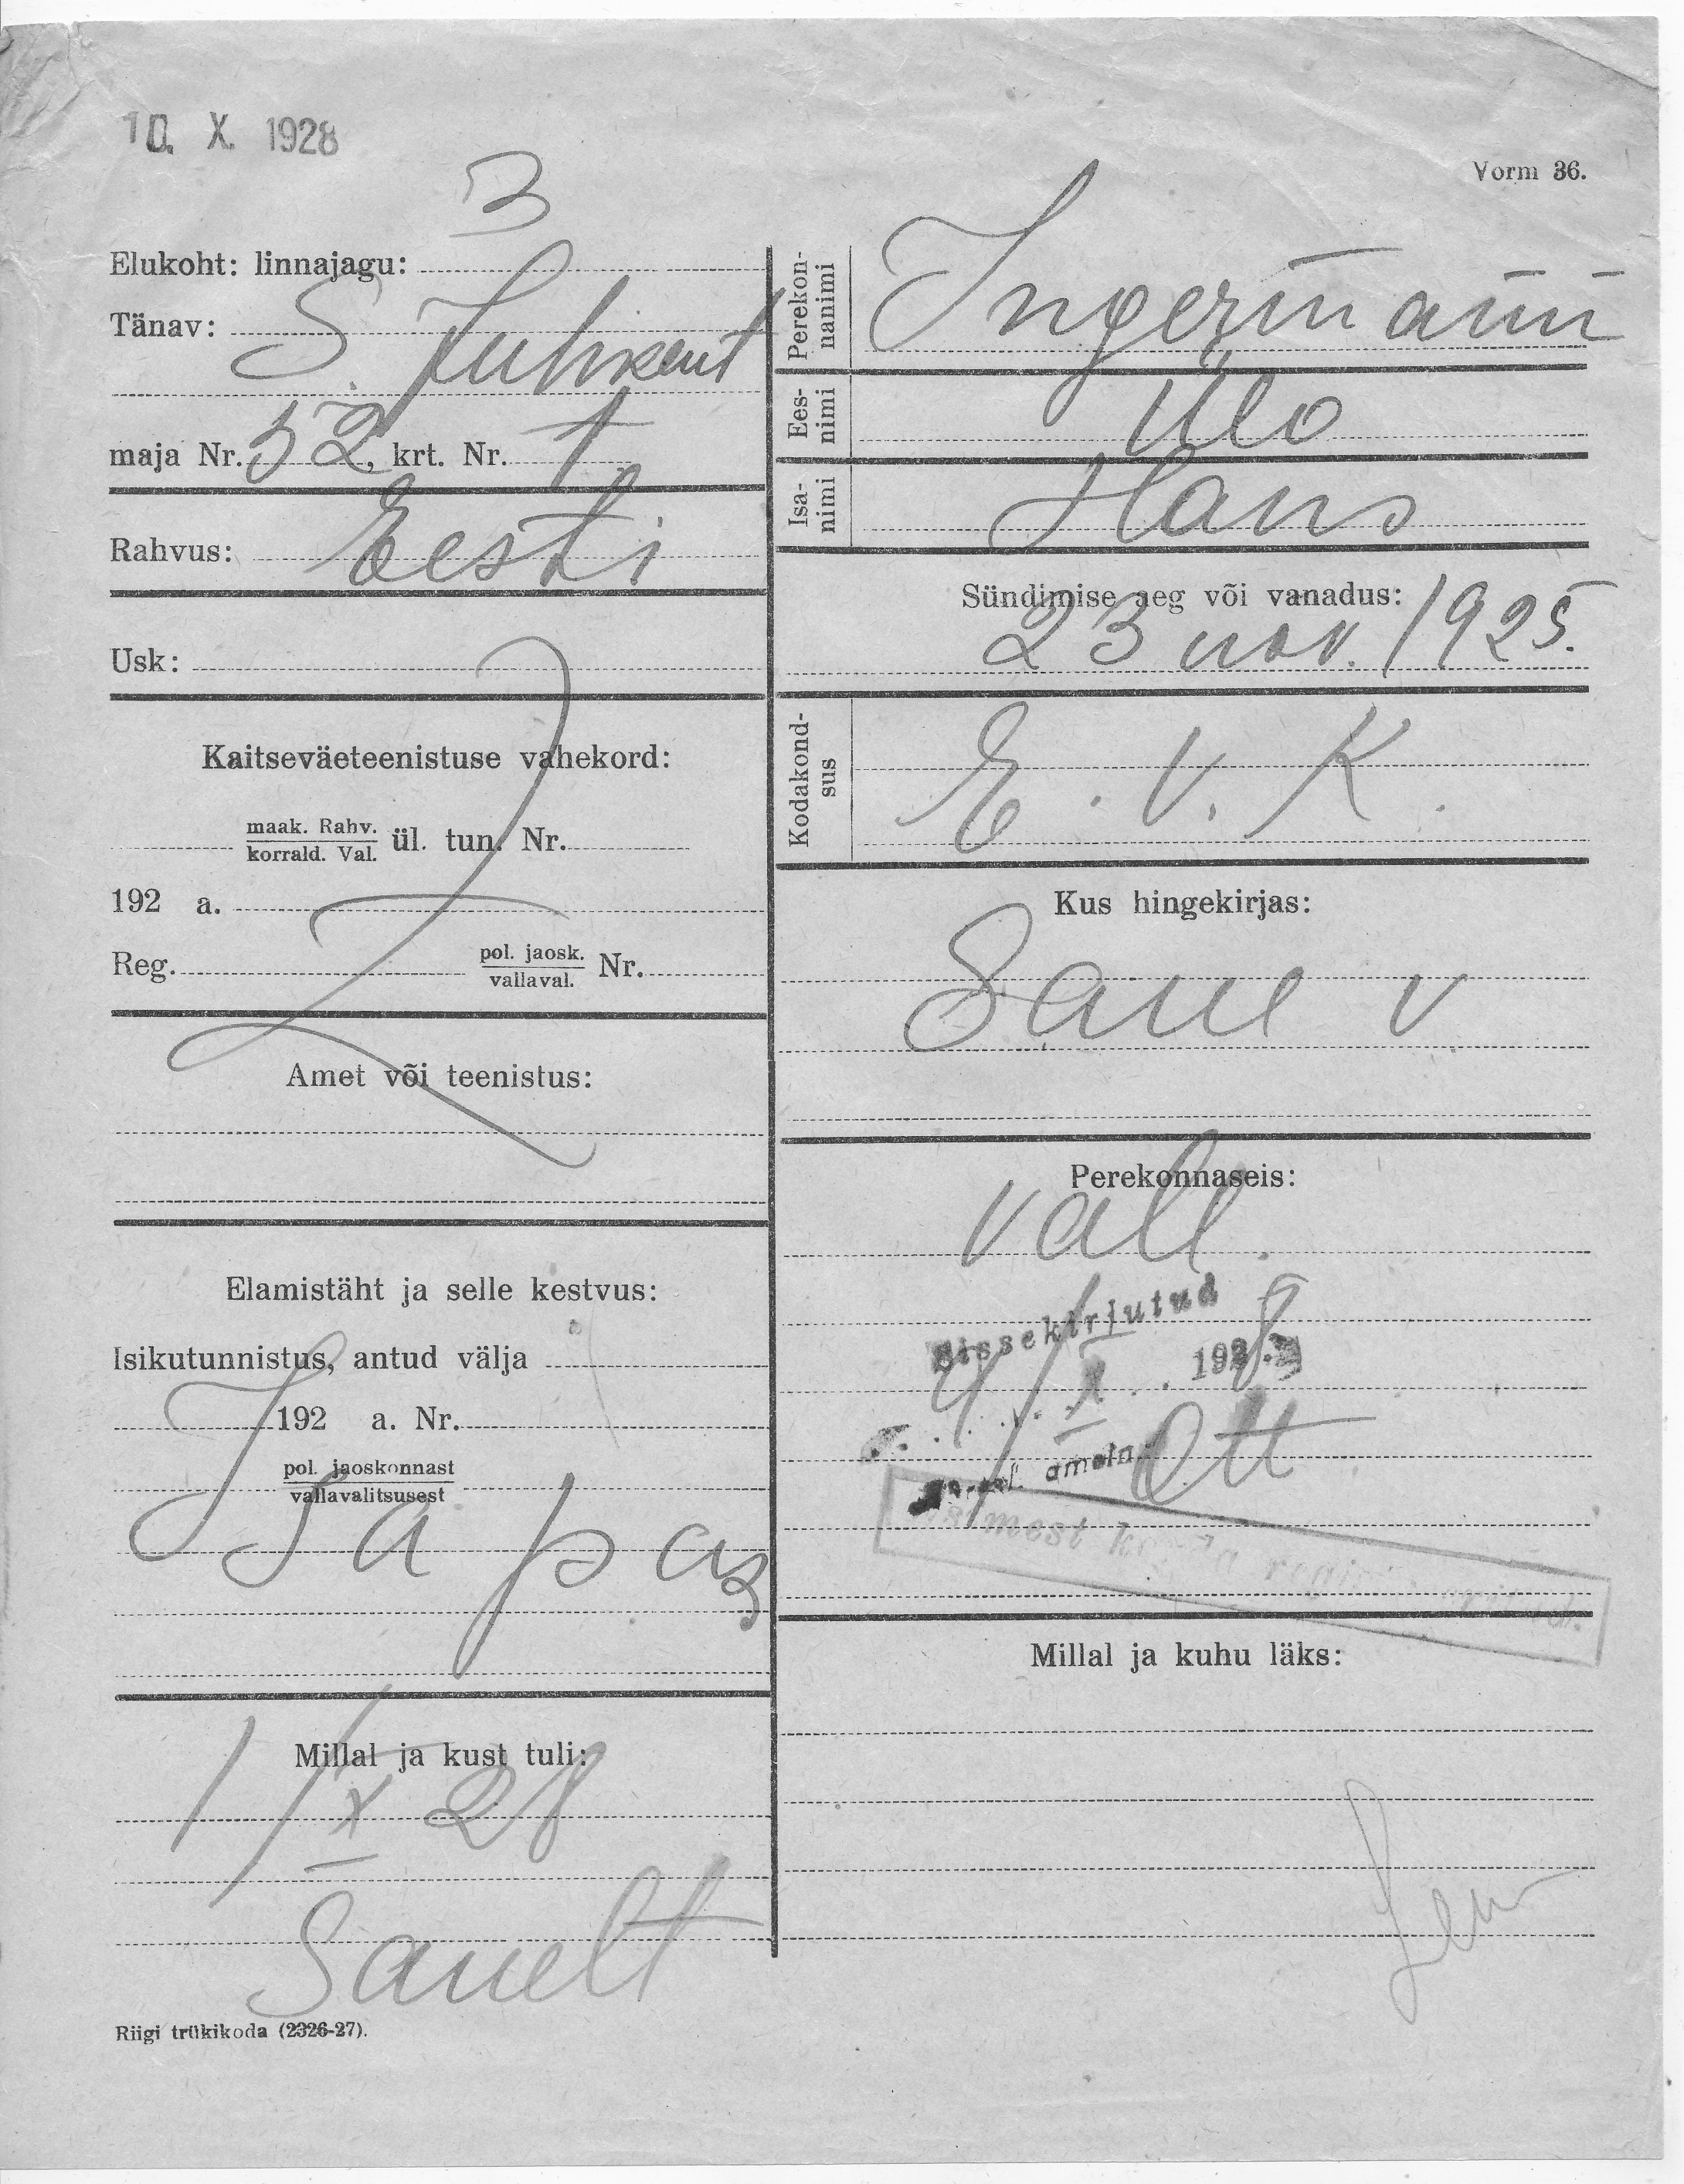 10. X. 1928
Vorm 36.
3
Elukoht: linnajagu:
Tänav: S. Juhkent
maja Nr. 52, krt. Nr. 1
Rahvus: Eesti
Usk:
Kaitseväeteenistuse vahekord:
maak. Rahv.
korrald. Val. ül. tun. Nr.
192 a.
Reg. pol. jaosk.
vallaval. Nr.
Amet või teenistus:
Elamistäht ja selle kestvus:
Isikutunnistus, antud välja
192 a. Nr.
pol. jaoskonnast
vallavalitsusest
Millal ja kust tuli:
1/X 28
Sauelt
Riigi trükikoda (2326-27).
Perekon-
nanimi Ingermann
Ees-
nimi Ülo
Isa-
nimi Hans
Sündimise aeg või vanadus:
23 nov. 1925.
Kodakond-
sus E. V. K.
Kus hingekirjas:
Saue v
Perekonnaseis:
vall.
Sissekirjutud
4/X 1928
ametn. Ott
Esimest korda
Millal ja kuhu läks: